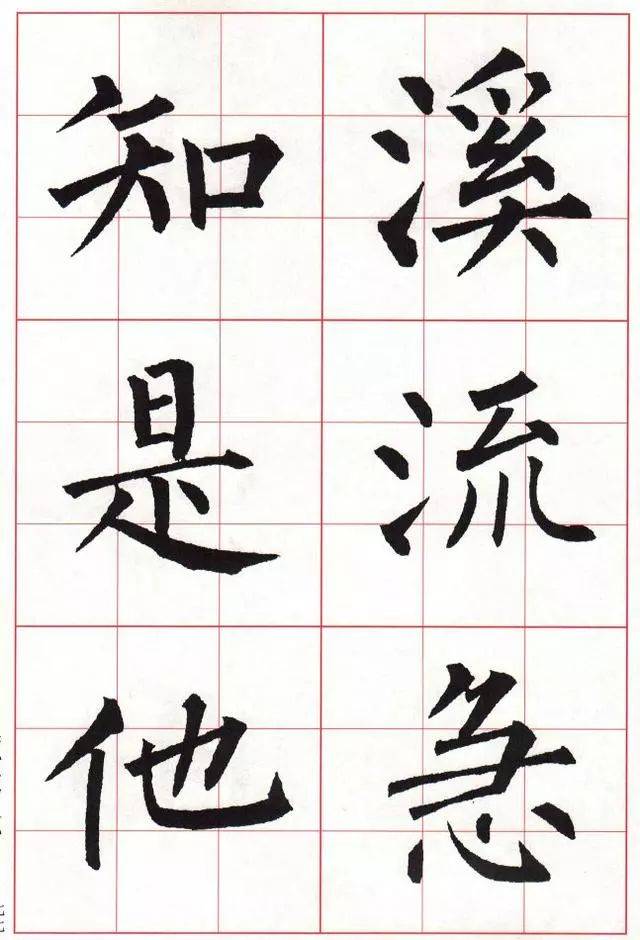 溪流急
知是他